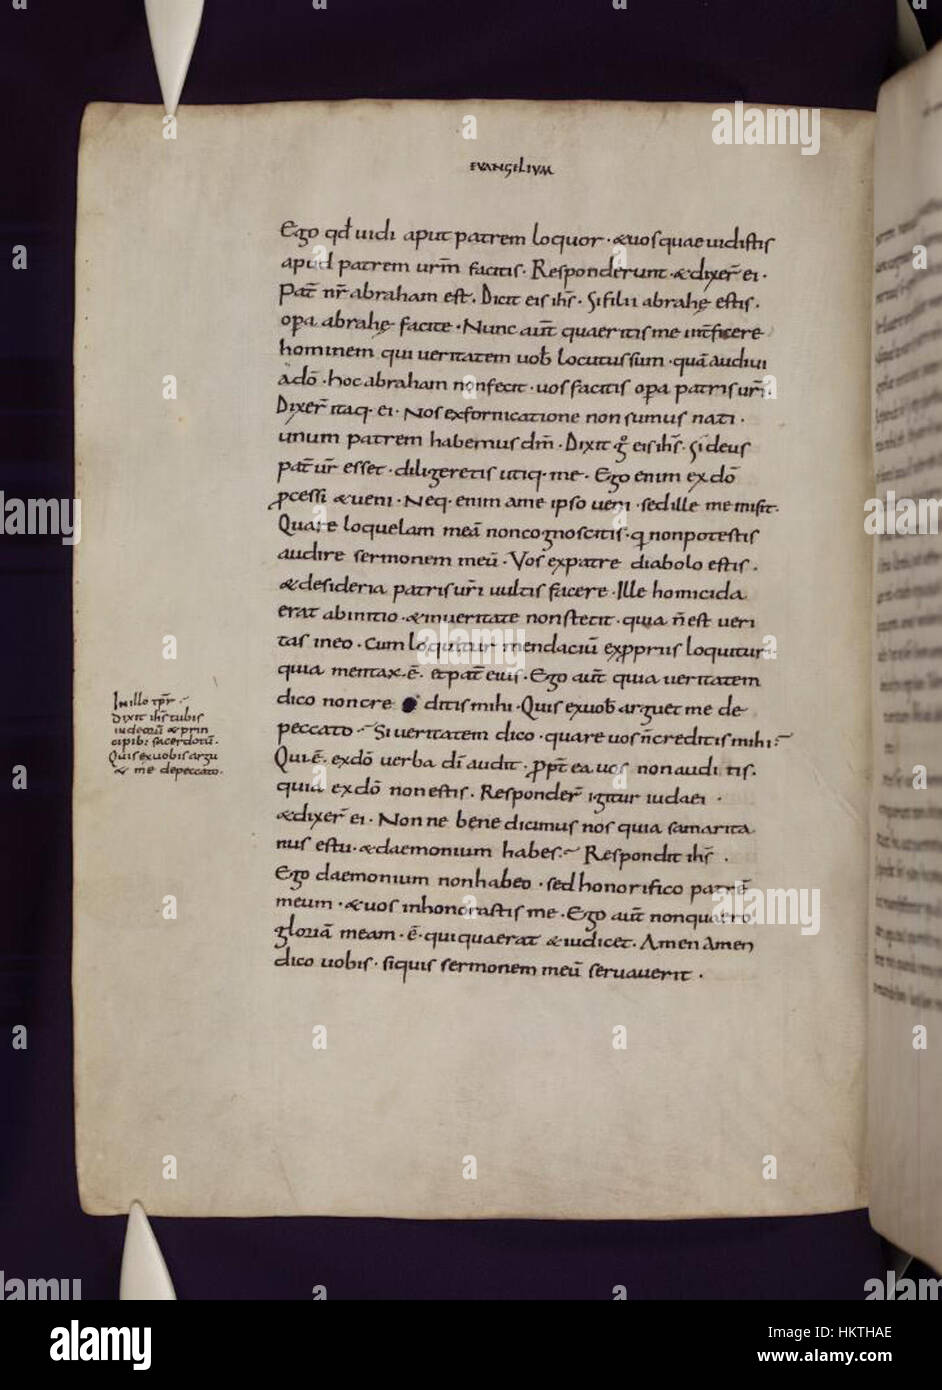 EVANGELIUM
Ego qd̄ uidi aput patrem loquor · & uos quae uidistis
apud patrem urm̄ facitis. Responderunt · & dixer̄ ei ·
Pat̄ nr̄ abraham est. Dicit eis ihs̄ · Si filii abrahę estis ·
opa abrahę facite · Nunc aut̄ quaeritis me int̄ficere
hominem qui ueritatem uob̄ locutus sum · quā audiui
a dō · hoc abraham non fecit · uos facitis opa patris ur̄i ·
Dixer̄ itaq· ei · Nos ex fornicatione non sumus nati ·
unum patrem habemus dm̄ · Dixit gͦ eis ihs̄ · Si deus
pat̄ ur̄ esset · diligeretis utiq· me · Ego enim ex dō
ꝓcessi & ueni · Neq· enim a me ipso ueni · sed ille me misit ·
Quare loquelam meā non cognoscitis · q non potestis
audire sermonem meū · Vos ex patre diabolo estis ·
& desideria patris ur̄i uultis facere · Ille homicida
erat ab initio · & in ueritate non stetit · quia n̄ est ueri
tas in eo · Cum loquitur mendaciū ex ꝓpriis loquitur ·
quia mentax · ē · et pat̄ eius · Ego aut̄ quia ueritatem
dico non cre ditis mihi · Quis ex uob̄ arguet me de
peccato · Si ueritatem dico · quare uos n̄ creditis mihi
Qui ē · ex dō uerba dī audit · ꝓpt̄ea uos non auditis ·
quia ex dō non estis · Responder̄ igitur iudaei ·
& dixer̄ ei · Nonne bene dicimus nos quia samarita
nus es tu · & daemonium habes · Respondit ihs̄ ·
Ego daemonium non habeo · sed honorifico patrē
meum · & uos inhonorastis me · Ego aut̄ non quaero
gloriā meam · ē · qui quaerat & iudicet · Amen Amen
dico uobis · siquis sermonem meū seruauerit ·
In illo tpr̄
Dixit ihs̄ turbis
iudeorū & prin
cipib: sacerdotū ·
Quis ex uobis argu
& me de peccato ·
alamy
Image ID: HKTHAE
www.alamy.com